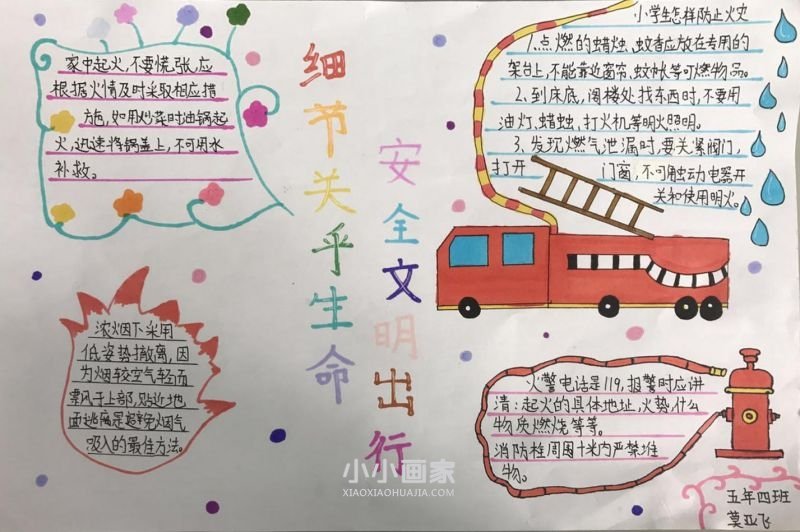 家中起火,不要慌张,应
根据火情及时采取相应措
施,如用炒菜时油锅起
火,迅速将锅盖上,不可用水
补救。
细节关乎生命
安全文明出行
小学生怎样防止火灾
1.点燃的蜡烛、蚊香应放在专用的
架台上,不能靠近窗帘,蚊帐等可燃物品。
2、到床底,阁楼处找东西时,不要用
油灯、蜡烛、打火机等明火照明。
3、发现燃气泄漏时,要关紧阀门,
打开 门窗,不可触动电器开
关和使用明火。
浓烟下采用
低姿势撤离,因
为烟较空气轻而
飘于上部,贴近地
面逃离是避免烟气
吸入的最佳方法。
火警电话是119,报警时应讲
清:起火的具体地址,火势,什么
物质燃烧等等。
消防栓周围十米内严禁堆
物。
小小画家
XIAOXIAOHUAJIA.COM
五年四班
莫亚飞